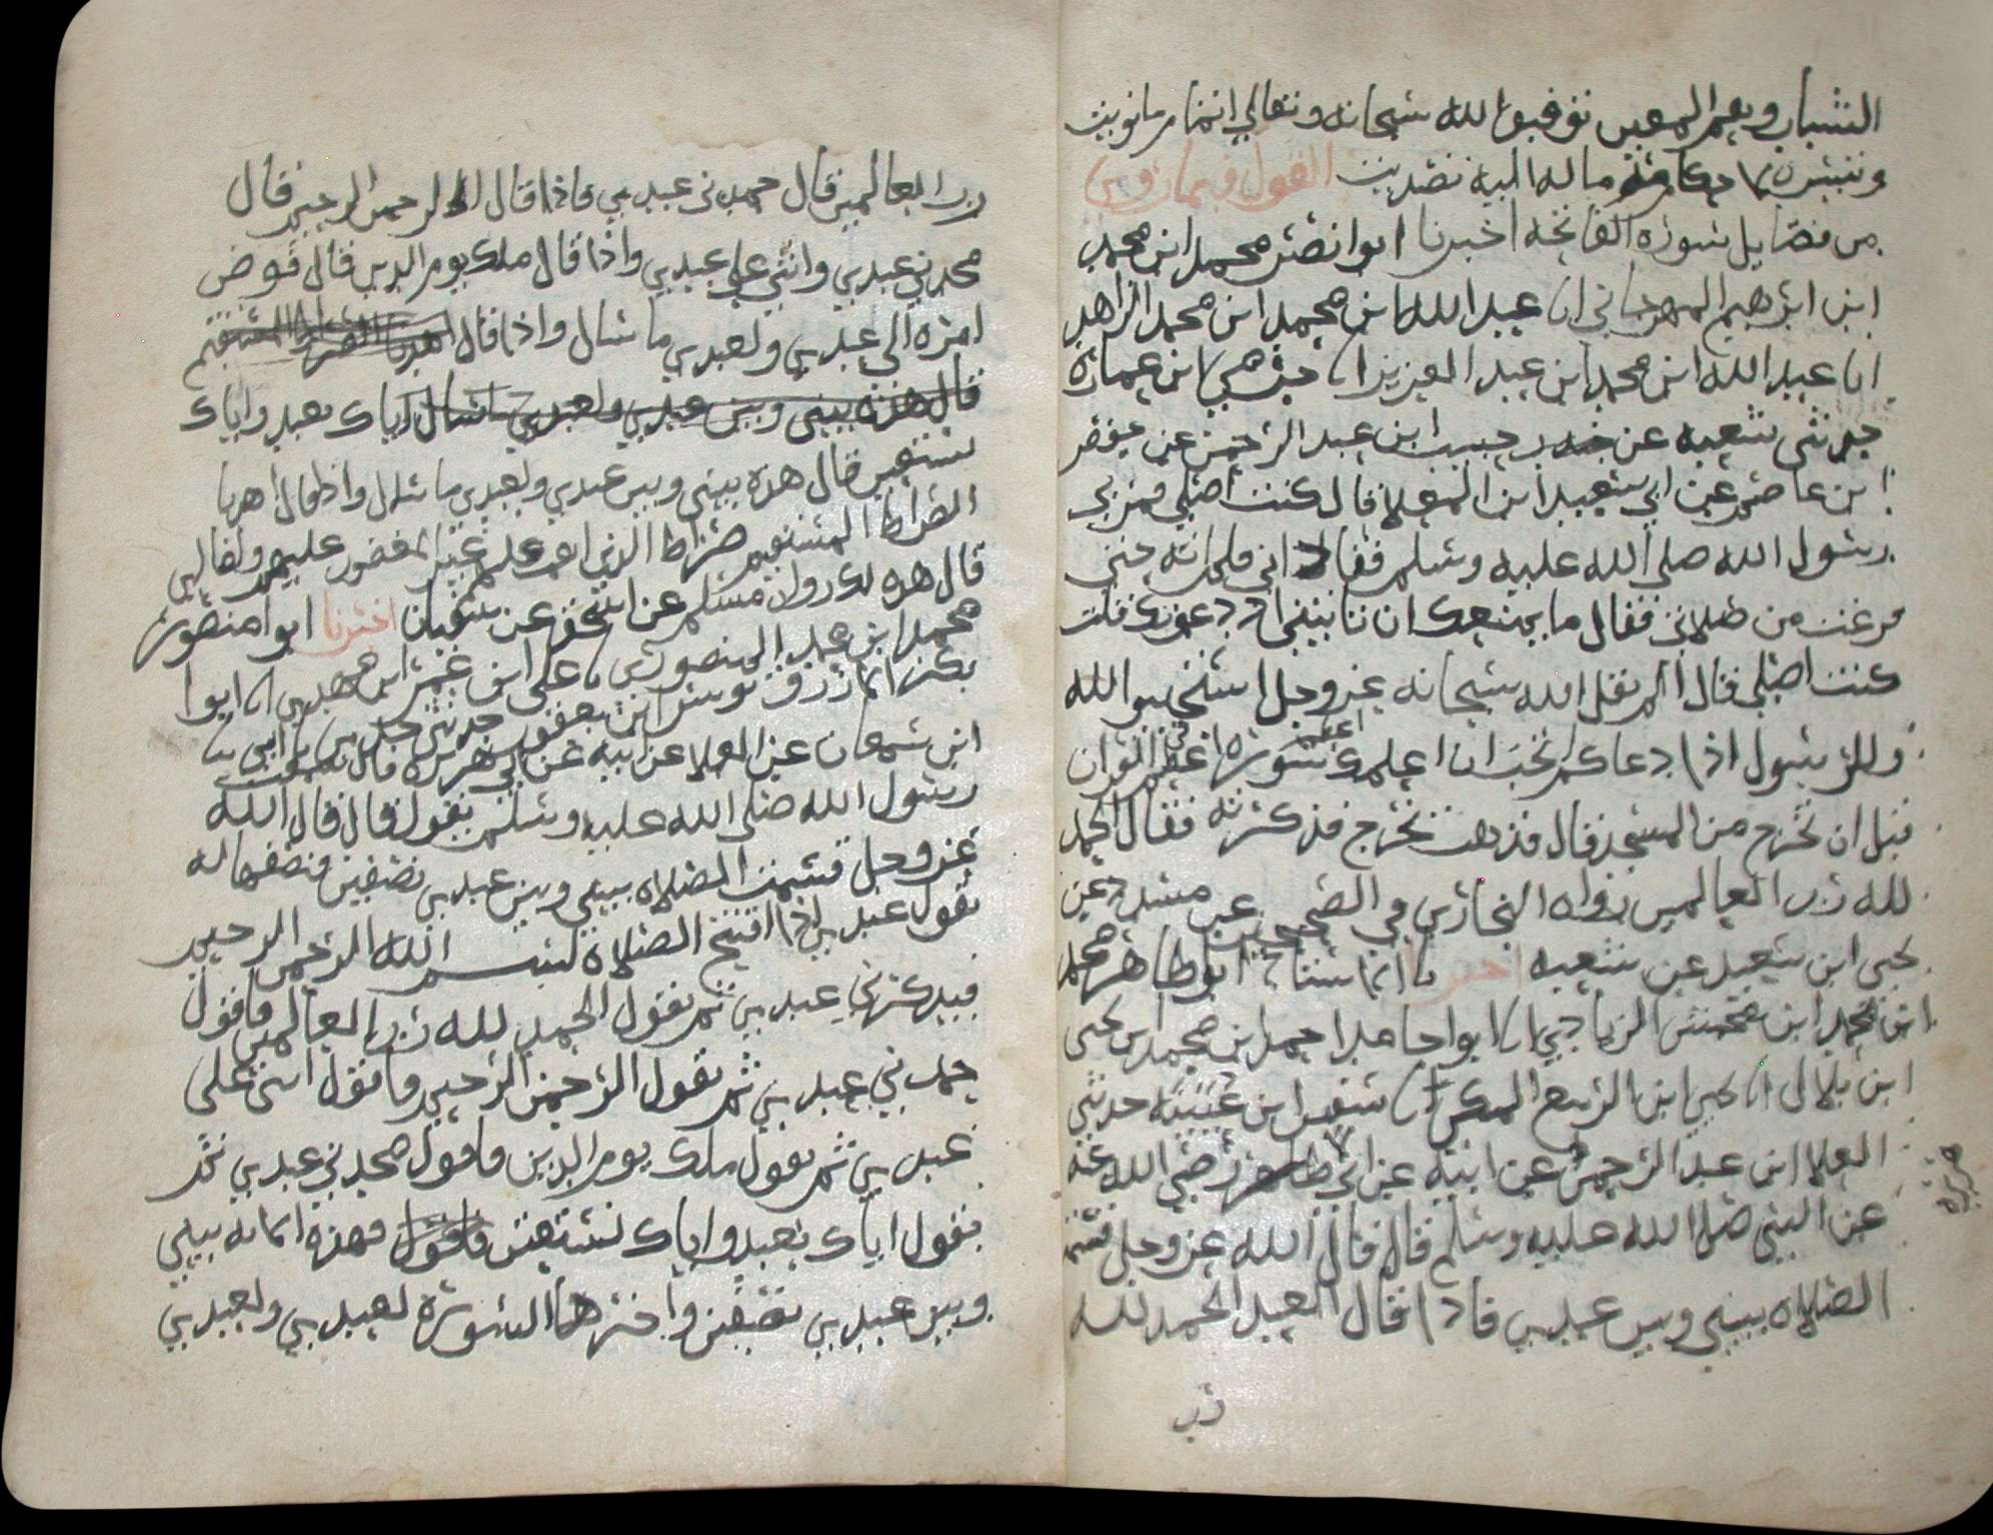 الشباب ونعم المعين توفيق الله سبحانه وتعالى اتمام ما نويت
وتيسره ما له اليه تصديت القول فيما روي
من فضايل سورة الفاتحه اخبرنا ابوا نصر محمد ابن محمد
ابن ابرهيم المهرجاني انا عبد الله ابن محمد ابن محمد الزاهد
انا عبد الله ابن محمد ابن عبد العزيز انا حرمي ابن عمارة
حدثني شعبه عن حبيب ابن عبد الرحمن عن حفص
ابن عاصم عن ابي سعيد ابن المعلا قال كنت اصلي فمر بي
رسول الله صلى الله عليه وسلم فقال اني فلم اته حتى
فرغت من صلاتي فقال ما يمنعك ان تاتيني اذ دعوتك قلت
كنت اصلي قال الم يقل الله سبحانه عز وجل استجيبو الله
وللرسول اذا دعاكم تحب ان اعلمك اعظم سورة في القران
قبل ان نخرج من المسجد قال فذهب يخرج فذكرته فقال الحمد
لله رب العالمين رواه البخاري في الصحيح عن مسدد عن
يحيى ابن سعيد عن شعبه اخبرنا ابوا طاهر محمد
ابن محمد ابن محمش الزيادي انا ابوا حامد احمد ابن محمد ابن يحيى
ابن بلال انا يحيى ابن الربيع المكي انا سفين ابن عيينه حدثني
العلا ابن عبد الرحمن عن ابيه عن ابي طاهر رضي الله عنه
هريره
عن النبي صلا الله عليه وسلم قال قال الله عز وجل قسمت
الصلاه بيني وبين عبدي فاذا قال العبد الحمد لله
رب
رب العالمين قال حمدني عبدي فاذا قال الرحمن الرحيم قال
مجدني عبدي واثنى علي عبدي واذا قال ملك يوم الدين قال فوض
امره الى عبدي ولعبدي ما سال واذا قال اهدنا الصراط المستقيم
قال هذه بيني وبين عبدي ولعبدي ما سال اياك نعبد واياك
نستعين قال هذه بيني وبين عبدي ولعبدي ما سال واذا قال اهدنا
الصراط المستقيم صراط الذين انعمت عليهم غير المغضوب عليهم ولا الضالين
قال هذه لك رواه مسلم عن اسحق عن سفيان اخبرنا ابوا منصور
محمد ابن محمد المنصوري نا علي ابن عمر ابن مهدي انا ابوا
بكر الازرق يوسف ابن يعقوب حدثني جدي نا ابي نا
ابن سمعان عن العلا عن ابيه عن ابي هريرة قال سمعت
رسول الله صلى الله عليه وسلم يقول قال قال الله
عز وجل قسمت الصلاه بيني وبين عبدي نصفين فنصفها له
يقول عبدي اذا افتتح الصلاة بسم الله الرحمن الرحيم
فيذكرني عبدي ثم يقول الحمد لله رب العالمين فاقول
حمدني عبدي ثم يقول الرحمن الرحيم فاقول اثنى علي
عبدي ثم يقول ملك يوم الدين فاقول مجدني عبدي ثم
يقول اياك نعبد واياك نستعين فاقول فهذه الايه بيني
وبين عبدي نصفين واخرها السورة لعبدي ولعبدي